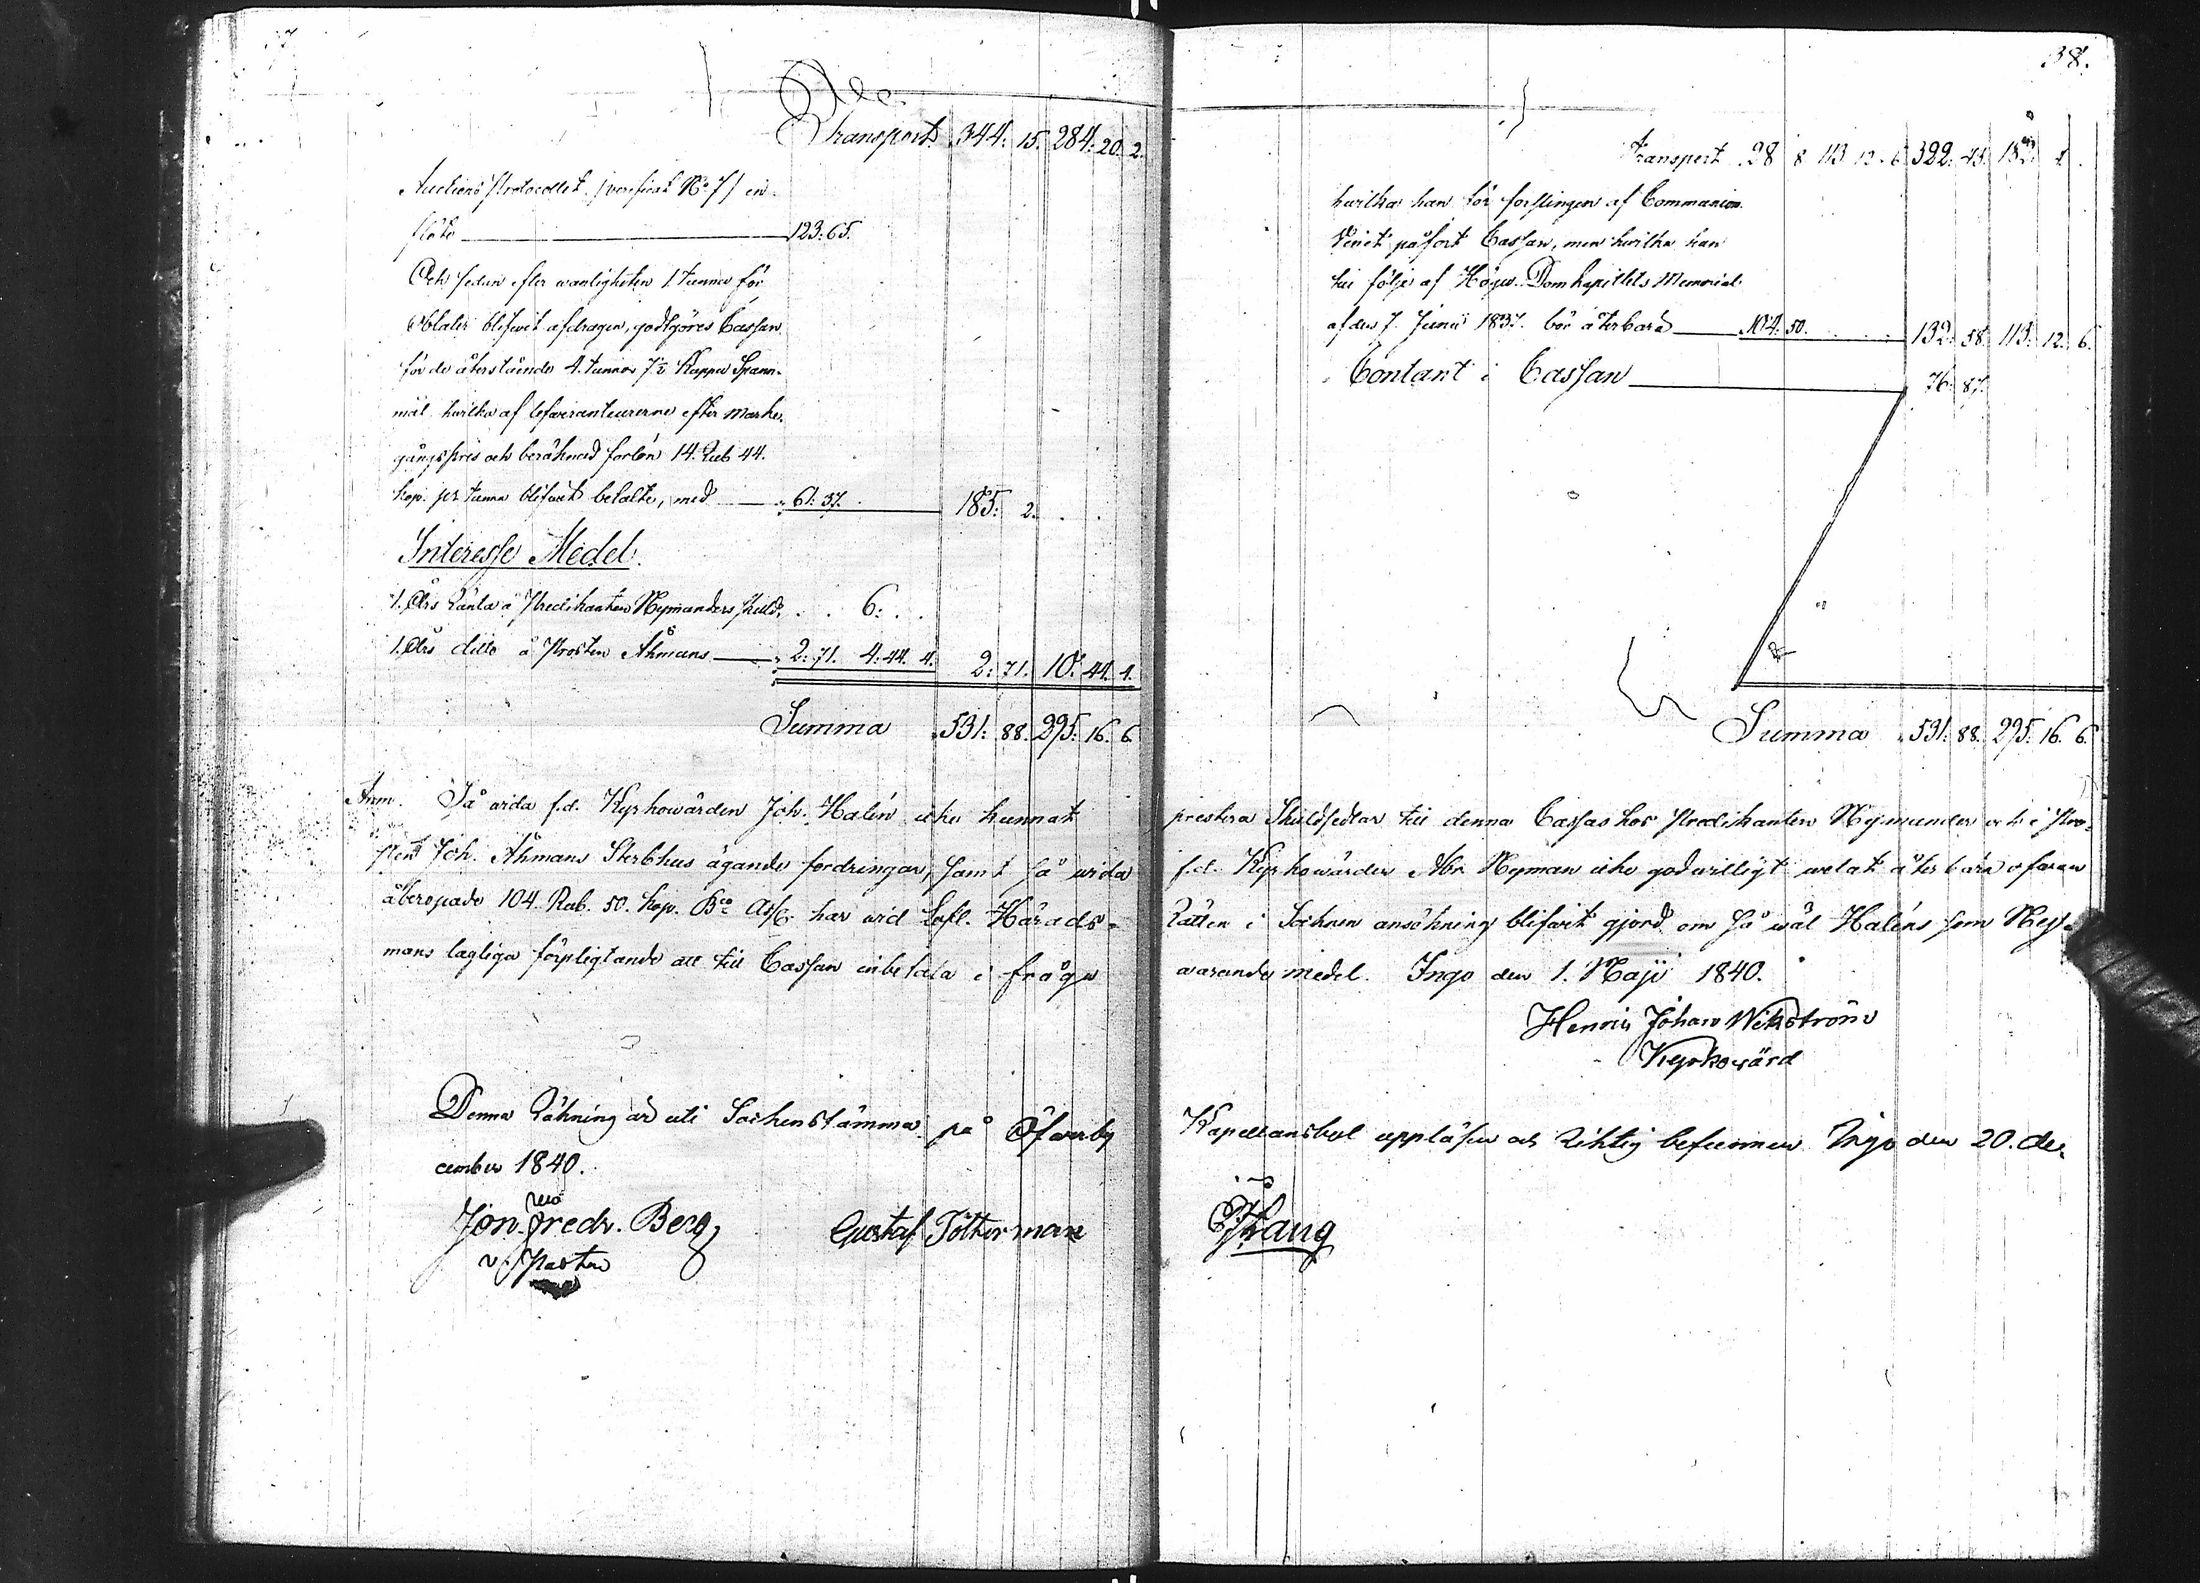 Transport. 344. 15. 284. 20. 2.
Auctions Protocollet (verificat No 7) in-
flöto 123:65.
Och sedan efter wanligheten 1 tunna för
Oblater blifwit afdragen, godtgöres Cassan
för de återstående 4. tunnor 7½ Kappa Spann-
mål hwilka af lefweranteurerne efter marke-
gångspris och beräknad forlön 14. Rub 44.
kop. per tunna blifwit betalte, med 61:37. 185: 2.
Interesse Medel.
1. Års Ränta å Predikanten Nymanders skuld. 6:
1. Års ditto å Prosten Åhmans 2:71. 4:44. 4. 2:71. 10:44. 4.
Summa 531:88. 295:16. 6.
Anm. Så wida f.d. Kyrkowärden Joh. Halén icke hunnat
sten Joh. Åhmans Sterbhus ägande fordringar, samt så wida
åberopade 104. Rub. 50. kop. Bco Ass. har wid Lofl. Härads-
mans lagliga förpligtande att till Cassan inbetala i fråga
Denna Räkning är uti Sockenstämma på Öfwerby
cember 1840.
Jon. Fredr. Berg
v. Pastor
Gustaf Tötterman
38.
Transport 28 8 113 12. 6 322. 43. 182. 4.
hwilka han för forslingen af Communion
Vinet påfört Cassan, men hwilka han
till följe af Högw. Domkapitlets Memorial
af den 7. Junii 1837. bör återbära 104. 50. 132. 58. 113. 12. 6.
Contant i Cassan 76. 87.
Summa 531:88. 295. 16. 6.
prestera Skuldsedlar till denna Cassas hos Predikanten Nymander och i Pro-
f.d. Kyrkowärden Abr. Nyman icke godwilligt welat återbära ofwan
Rätten i Socknen ansökning blifwit gjord om så wäl Haléns som Ny-
warande medel. Ingo den 1. Maji 1840.
Henric Johan Wikström
Kyrkowärd
Kapellansbol uppläsen och Riktig befunnen Ingo den 20. de-